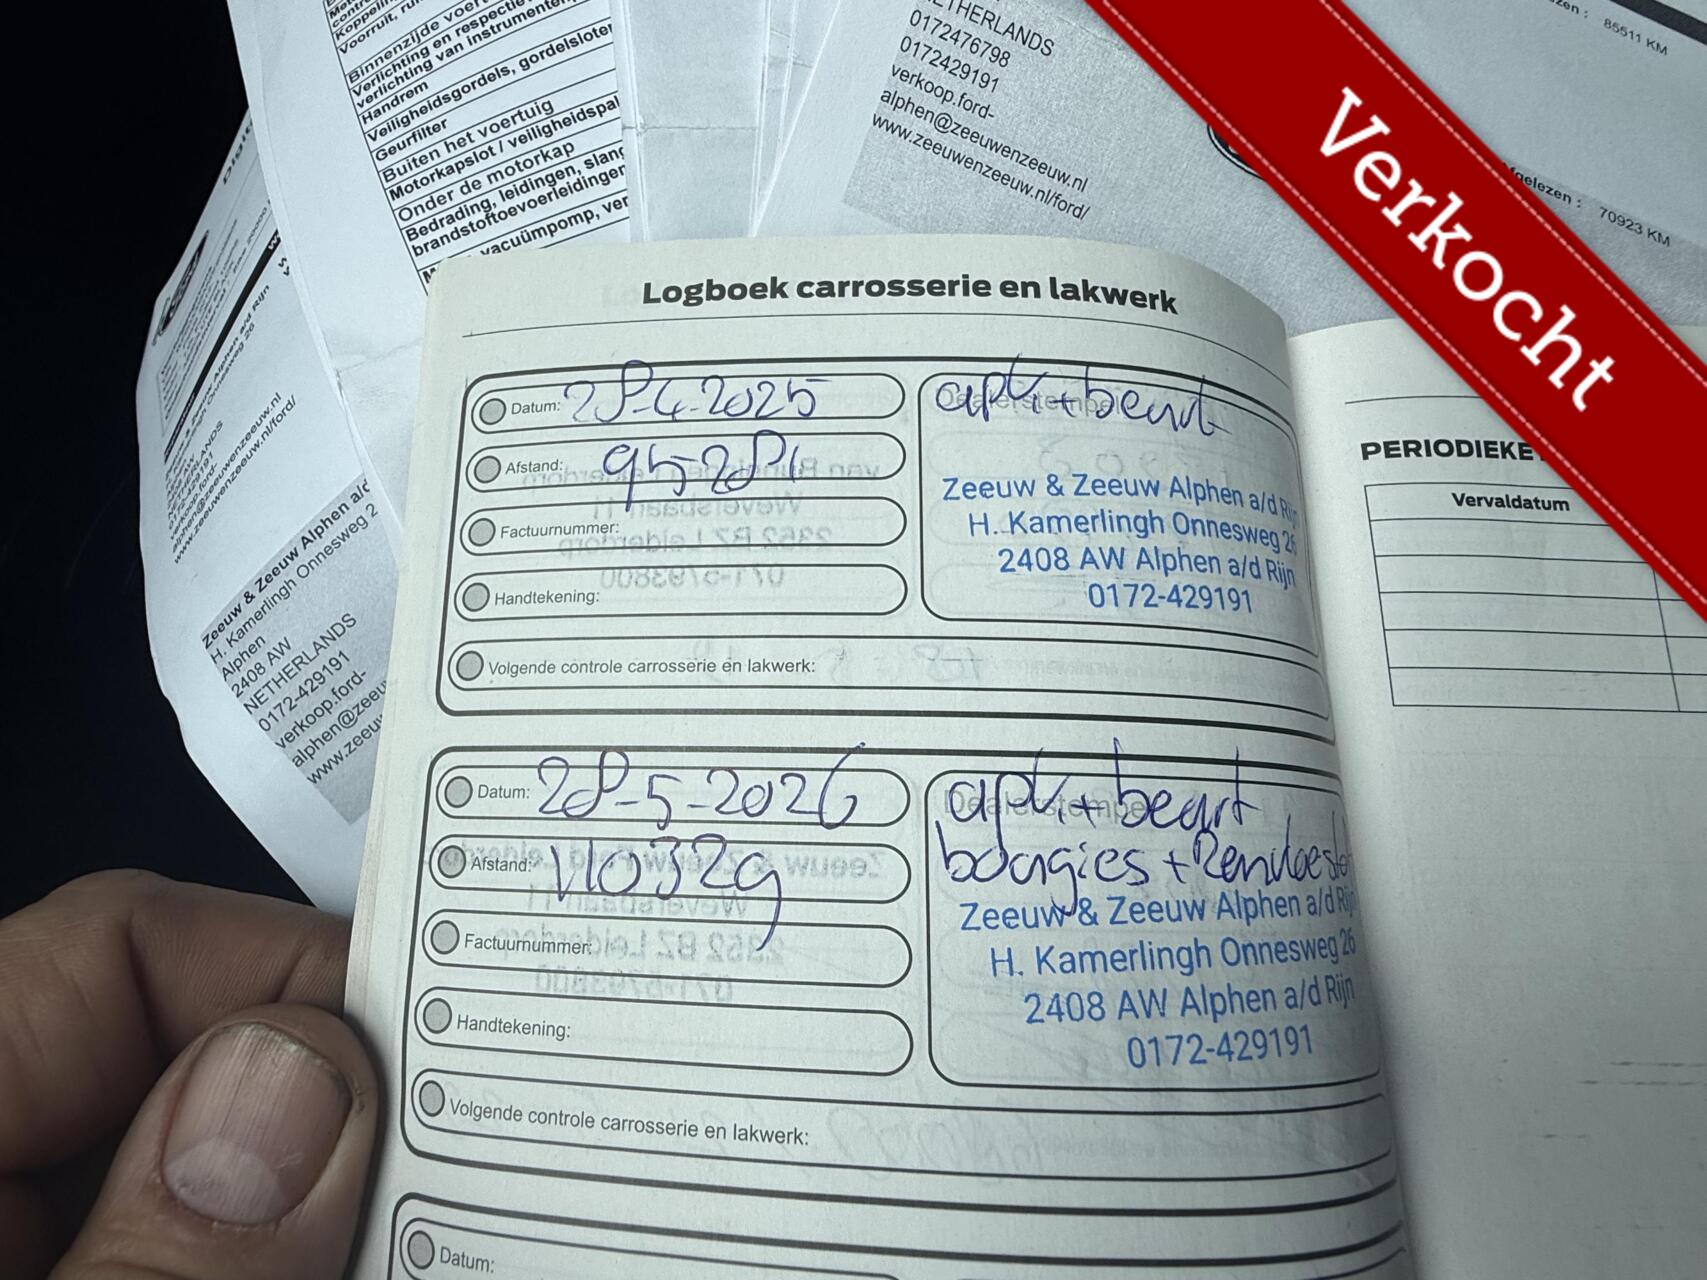 Koppeling
Voorruit, rui
Binnenzijde voer
Verlichting en respectie
verlichting van instrumenten
Handrem
Veiligheidsgordels, gordelsloter
Geurfilter
Buiten het voertuig
Motorkapslot / veiligheidspal
Onder de motorkap
Bedrading, leidingen, slang
brandstoftoevoerleidingen
vacuümpomp, ver
NETHERLANDS
0172476798
0172429191
verkoop.ford-
alphen@zeeuwenzeeuw.nl
www.zeeuwenzeeuw.nl/ford/
85511 KM
gelezen : 70923 KM
Verkocht
Zeeuw & Zeeuw Alphen a/d
H. Kamerlingh Onnesweg 2
Alphen
2408 AW
NETHERLANDS
0172-429191
verkoop.ford-
alphen@zeeu
www.zeeu
Logboek carrosserie en lakwerk
Datum: 28-4-2025
Afstand: 95281
Factuurnummer:
Handtekening:
Volgende controle carrosserie en lakwerk:
apk+beurt
Dealerstempel
Zeeuw & Zeeuw Alphen a/d Rijn
H. Kamerlingh Onnesweg 26
2408 AW Alphen a/d Rijn
0172-429191
Datum: 28-5-2026
Afstand: 110329
Factuurnummer:
Handtekening:
Volgende controle carrosserie en lakwerk:
apk+beurt
Dealerstempel
bougies +
Zeeuw & Zeeuw Alphen a/d Rijn
H. Kamerlingh Onnesweg 26
2408 AW Alphen a/d Rijn
0172-429191
Datum:
PERIODIEKE
Vervaldatum